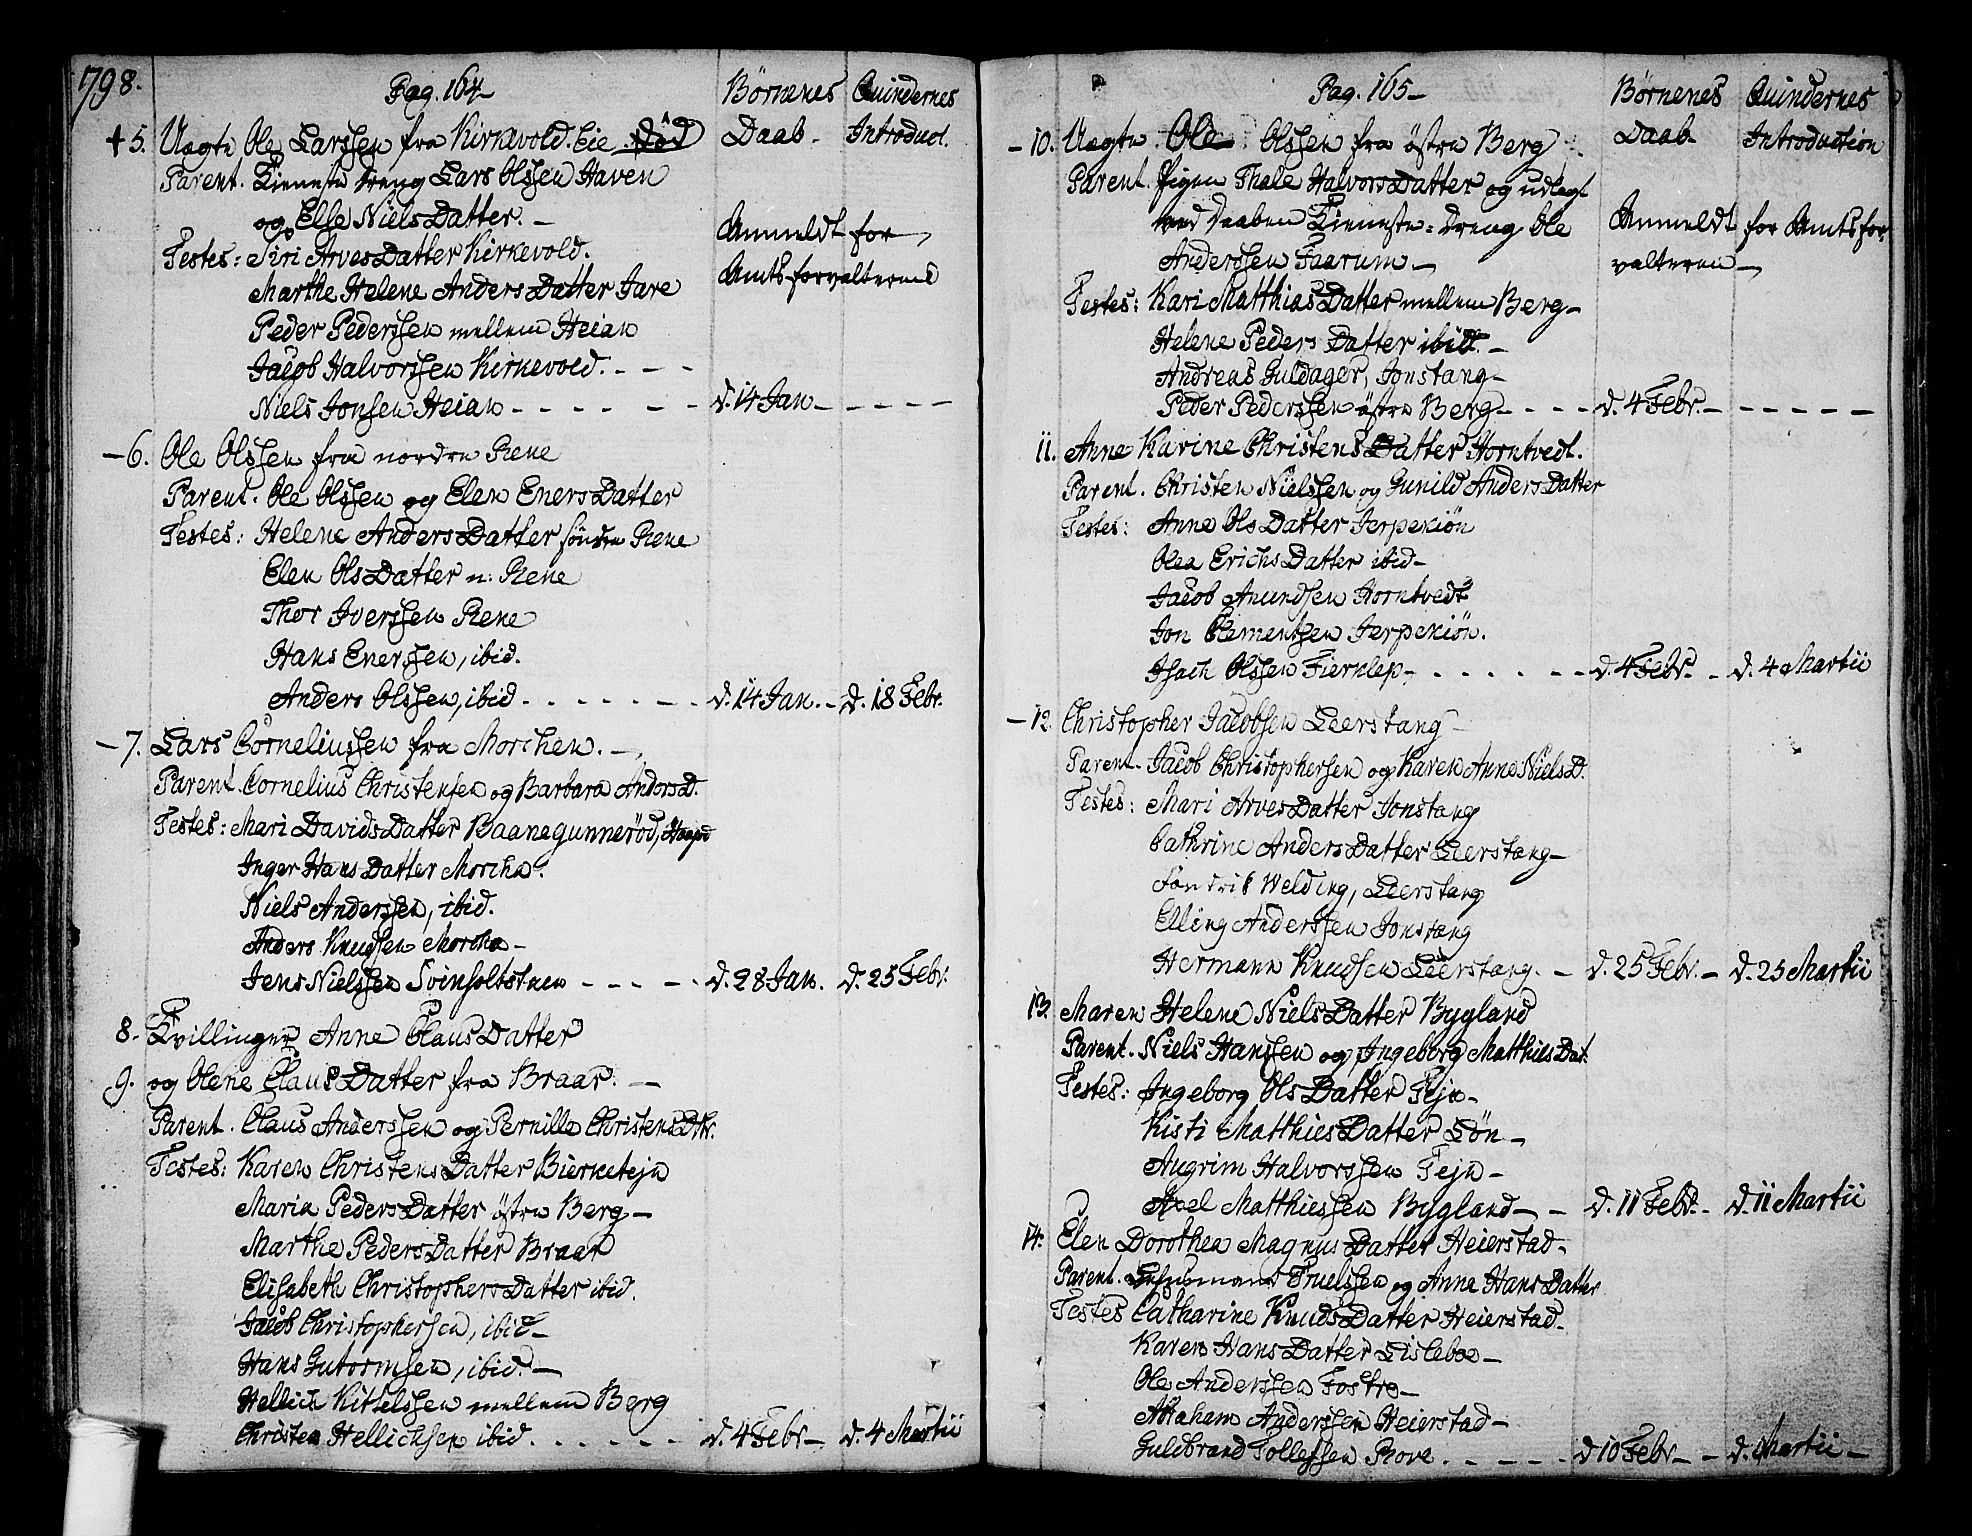 1798.
Pag. 164
Børnenes Daab
Quindernes Introduct.
+ 5. Uægte Ole Larssen fra Kirkevold. Eie. Död
Parent. Tieneste Dreng Lars Olssen Haven
og Else NielsDatter. —
Testes: Siri ArvesDatter Kirkevold.
Marthe Helene AndersDatter Jare
Peder Pederssen mellem Heian
Jacob Halvorssen Kirkevold.
Niels Jonsen Heian
Anmeldt for
Amtsforvalteren
d. 14 Jan —
— 6. Ole Olssen fra nordre Rene
Parent. Ole Olssen og Elen EnersDatter
Testes: Helene AndersDatter söndre Rene
Elen OlsDatter n: Rene
Thor Iverssen Rene
Hans Enerssen, ibid.
Anders Olssen, ibid. d. 14 Jan. — d. 18 Febr.
— 7. Lars Corneliussen fra Morchen. —
Parent. Cornelius Christensen og Barbara AndersD.
Testes: Mari DavidsDatter Baanegunneröd,
Inger HansDatter Morcha.
Niels Anderssen, ibid.
Anders Knudsen Morcha —
Jens Nielssen Svinholtstuen d. 28 Jan. d. 25 Febr.
8. Tvillinger Anne ClausDatter
9. og Olene ClausDatter fra Braar. —
Parent. Claus Anderssen og Pernille ChristensDtr.
Testes: Karen ChristensDatter Bierketeju
Maria PedersDatter östre Berg —
Marthe PedersDatter Braar
Elisabeth ChristophersDatter ibid.
Jacob Christophersen, ibid —
Hans Gutormsen, ibid. —
Hellich Kittelssen mellem Berg
Christen Hellichsen ibid. d. 4 Febr — d. 4 Martii
Pag. 165 —
Børnenes Daab
Quindernes Introduction
— 10. Uægte Ole Olssen fra östre Berg
Parent. Pigen Thale HalvorsDatter og udlagt
ved Daaben Tieneste-Dreng Ole
Anderssen Faarum —
Anmeldt for Amtsfor-
valteren —
Testes: Kari MatthiasDatter mellem Berg —
Helene PedersDatter ibid. —
Andreas Guldager, Jonstang —
Peder Pederssen östre Berg d. 4 Febr. —
11. Anne Karine ChristensDatter Horntvedt.
Parent. Christen Nielssen og Gunild AndersDatter
Testes: Anne OlsDatter Jerpekiön
Olea ErichsDatter ibid —
Jacob Anundsen Horntvedt
Jon Clementsen Jerpekiön.
Isach Olssen Fierklep — d. 4 Febr. — d. 4 Martii
— 12. Christopher Jacobsen Leerstang
Parent. Jacob Christophersen og Karen Anne NielsD.
Testes: Mari ArvesDatter Jonstang
Cathrine AndersDatter Leerstang —
Welding, Leerstang
Elling Anderssen Jonstang
Hermann Knudsen Leerstang. — d. 25 Febr. — d. 25 Martii
13. Maren Helene NielsDatter Bygland
Parent. Niels Hanssen og Ingeborg MatthiesDat.
Testes: Ingeborg OlsDatter Teju —
Kisti MatthiesDatter Lön —
Angrim Halvorssen Teju —
Axel Matthiessen Bygland — d. 11 Febr. — d. 11 Martii
14. Elen Dorothea MagnusDatter Heierstad —
Parent. Truelssen og Anne HansDatter
Testes Catharine KnudsDatter Heierstad —
Karen HansDatter Lisleboe —
Ole Anderssen Fostre —
Abraham Anderssen Heierstad —
Guldbrand Tollefssen Rove d. 10 Febr. — d. Martii —